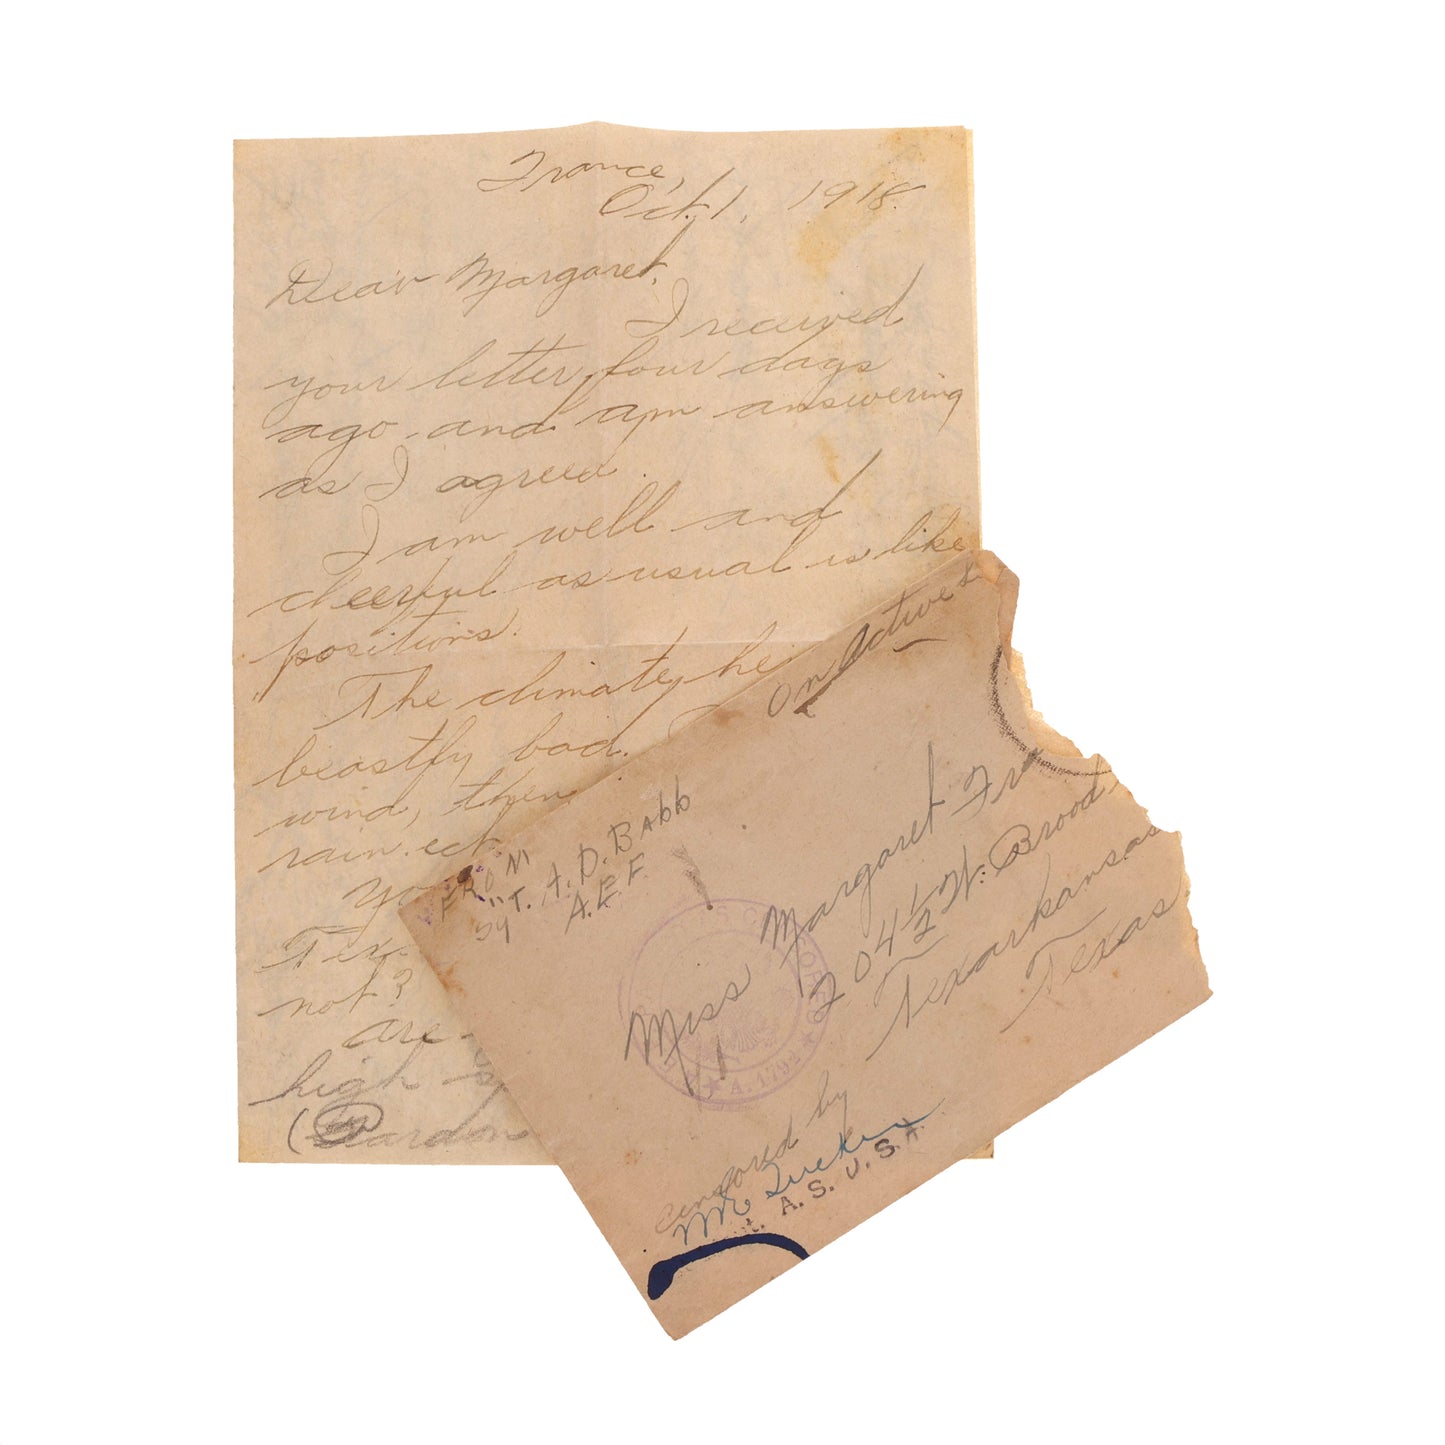 France,
Oct. 1, 1918.
Dear Margaret,
I received
your letter four days
ago and am answering
as I agreed.
I am well and
cheerful as usual is like
positions.
The climate he
beastly bad.
wind, then
rain. ect.
yo
Tex
not?
are
high
(Pardon
On Active S
FROM
A. D. Babb
A.E.F.
Miss Margaret Fr
204 1/2 W. Broad
Texarkansas
Texas.
A. 1793
Censored by
A. S. U. S. A.